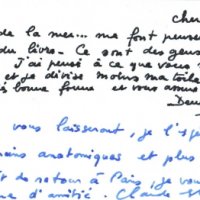 cher
de la mer... me font penser
du livre - Ce sont des gens
J'ai pensé à ce que vous
et je divise moins ma toile
bonne forme et vous
vous laisseront, je l'
anatomiques et plus
de retour à Paris, je vous
d'amitié. Claude